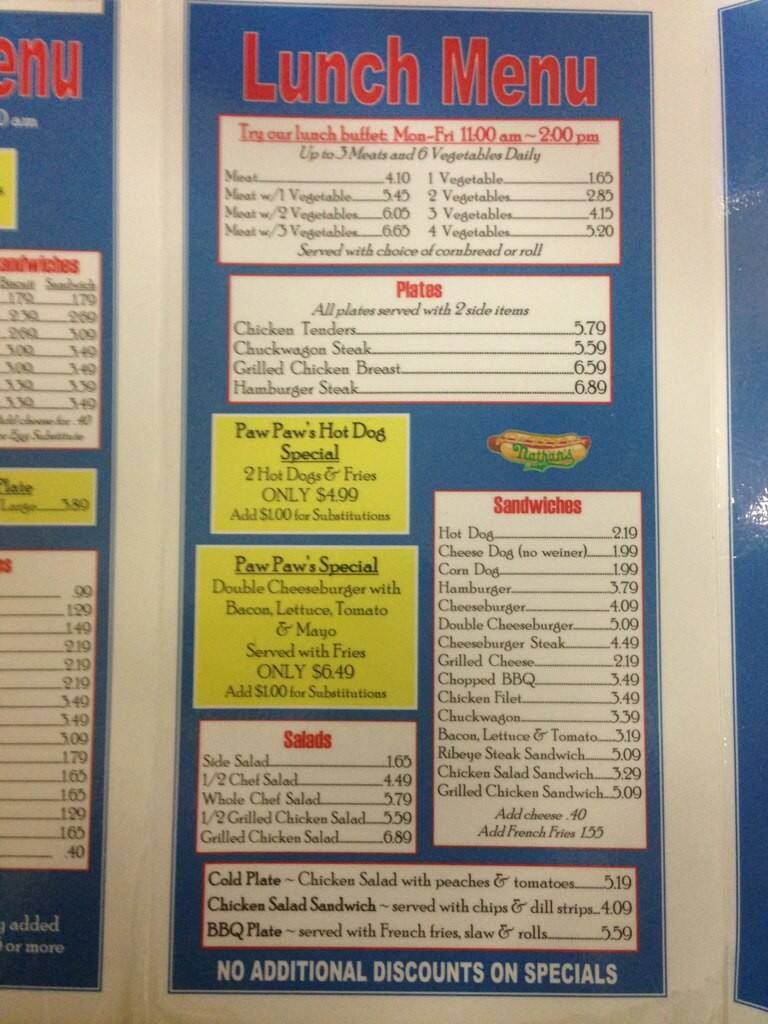 enu
0 am
andwiches
Biscuit Sandwich
1.79 1.79
2.39 2.69
2.69 3.09
3.09 3.49
3.09 3.49
3.39 3.39
3.39 3.49
Add cheese for .40
Egg Substitute
Plate
Large 3.89
s
.99
1.29
1.49
2.19
2.19
2.19
3.49
3.49
3.09
1.79
1.65
1.65
1.29
1.65
.40
added
or more
Lunch Menu
Try our lunch buffet: Mon-Fri 11:00 am ~ 2:00 pm
Up to 3 Meats and 6 Vegetables Daily
Meat 4.10 1 Vegetable 1.65
Meat w/1 Vegetable 5.45 2 Vegetables 2.85
Meat w/2 Vegetables 6.05 3 Vegetables 4.15
Meat w/3 Vegetables 6.65 4 Vegetables 5.20
Served with choice of cornbread or roll
Plates
All plates served with 2 side items
Chicken Tenders 5.79
Chuckwagon Steak 5.59
Grilled Chicken Breast 6.59
Hamburger Steak 6.89
Paw Paw's Hot Dog
Special
2 Hot Dogs & Fries
ONLY $4.99
Add $1.00 for Substitutions
Paw Paw's Special
Double Cheeseburger with
Bacon, Lettuce, Tomato
& Mayo
Served with Fries
ONLY $6.49
Add $1.00 for Substitutions
Salads
Side Salad 1.65
1/2 Chef Salad 4.49
Whole Chef Salad 5.79
1/2 Grilled Chicken Salad 5.59
Grilled Chicken Salad 6.89
Nathan's
Sandwiches
Hot Dog 2.19
Cheese Dog (no weiner) 1.99
Corn Dog 1.99
Hamburger 3.79
Cheeseburger 4.09
Double Cheeseburger 5.09
Cheeseburger Steak 4.49
Grilled Cheese 2.19
Chopped BBQ 3.49
Chicken Filet 3.49
Chuckwagon 3.39
Bacon, Lettuce & Tomato 3.19
Ribeye Steak Sandwich 5.09
Chicken Salad Sandwich 3.29
Grilled Chicken Sandwich 5.09
Add cheese .40
Add French Fries 1.55
Cold Plate ~ Chicken Salad with peaches & tomatoes 5.19
Chicken Salad Sandwich ~ served with chips & dill strips 4.09
BBQ Plate ~ served with French fries, slaw & rolls 5.59
NO ADDITIONAL DISCOUNTS ON SPECIALS